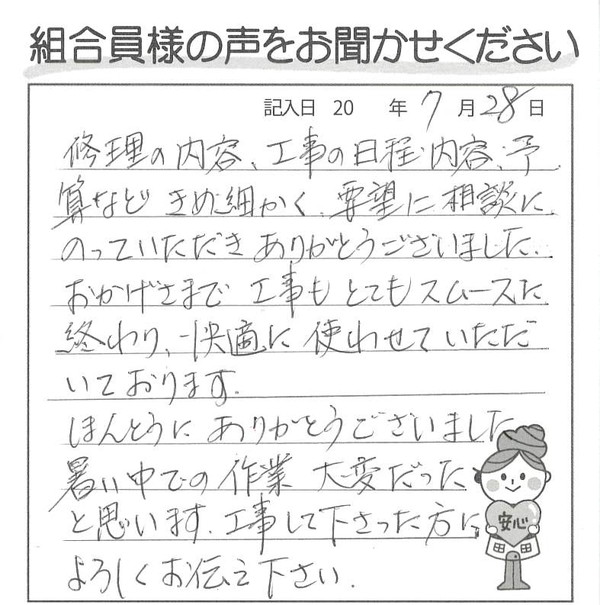 組合員様の声をお聞かせください
記入日 20 年 7 月 28 日
修理の内容、工事の日程・内容、予
算など きめ細かく、要望に相談に
のっていただき ありがとうございました.
おかげさまで 工事も とてもスムースに
終わり、快適に 使わせていただ
いております.
ほんとうに ありがとうございました
暑い中での 作業 大変だった
と思います. 工事して下さった方に
よろしくお伝え下さい.
安心